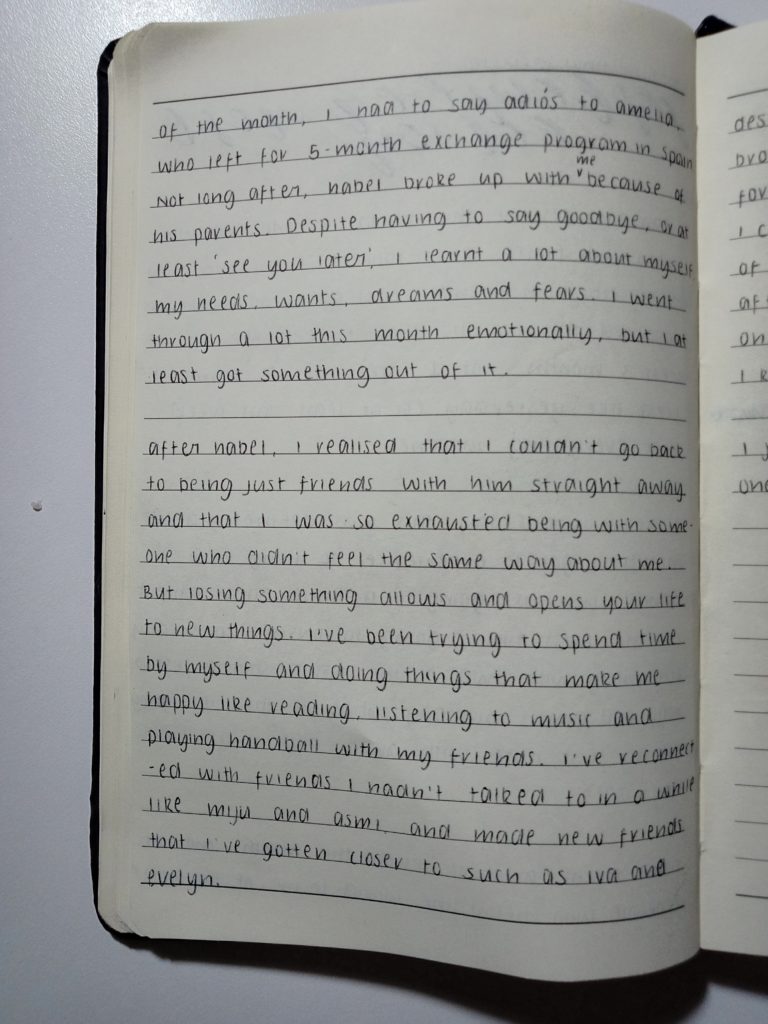 of the month, I had to say adiós to amelia,
who left for 5-month exchange program in spain
Not long after, habel broke up with me because of
his parents. Despite having to say goodbye, or at
least 'see you later', I learnt a lot about myself
my needs, wants, dreams and fears. I went
through a lot this month emotionally, but I at
least got something out of it.
after habel, I realised that I couldn't go back
to being just friends with him straight away
and that I was so exhausted being with some-
one who didn't feel the same way about me.
But losing something allows and opens your life
to new things. I've been trying to spend time
by myself and doing things that make me
happy like reading, listening to music and
playing handball with my friends. I've reconnect
-ed with friends I hadn't talked to in a while
like miju and asmi, and made new friends
that I've gotten closer to such as iva and
evelyn.
des
bro
for
I c
of
af
on
I
I
one